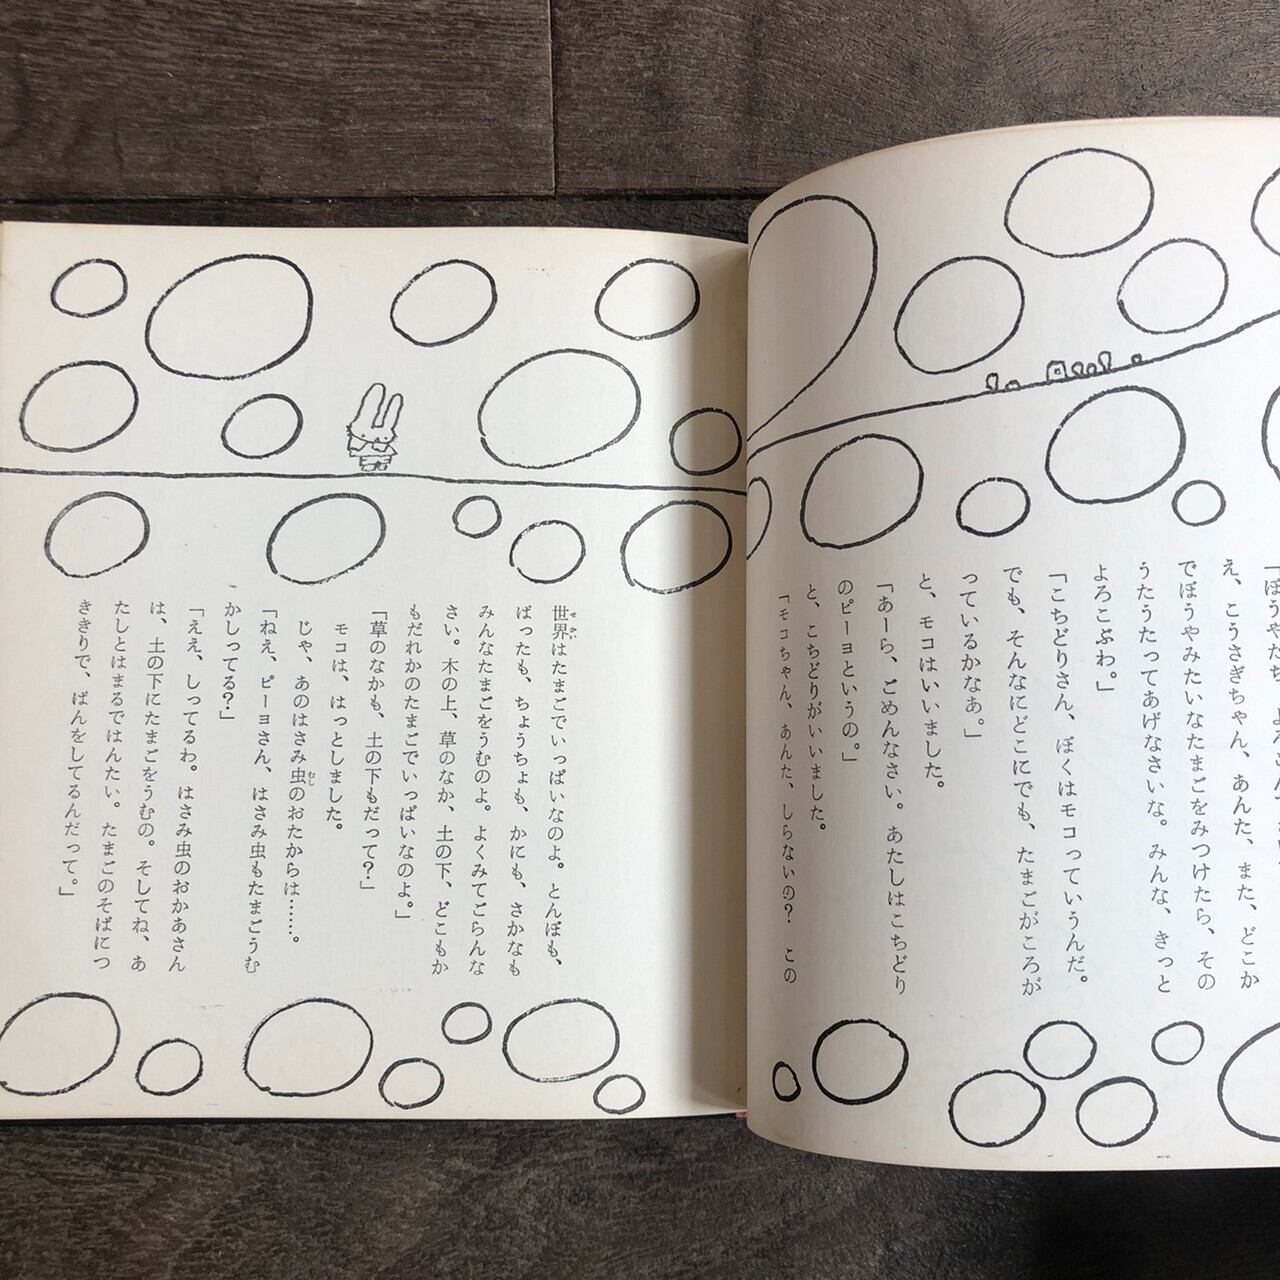 「ぼうやたち、よろこんで
え、こうさぎちゃん、あんた、また、どこか
でぼうやみたいなたまごをみつけたら、その
うたうたってあげなさいな。みんな、きっと
よろこぶわ。」
「こちどりさん、ぼくはモコっていうんだ。
でも、そんなにどこにでも、たまごがころが
っているかなあ。」
と、モコはいいました。
「あーら、ごめんなさい。あたしはこちどり
のピーヨというの。」
と、こちどりがいいました。
「モコちゃん、あんた、しらないの？　この
世界はたまごでいっぱいなのよ。とんぼも、
ばったも、ちょうちょも、かにも、さかなも
みんなたまごをうむのよ。よくみてごらんな
さい。木の上、草のなか、土の下、どこもか
もだれかのたまごでいっぱいなのよ。」
「草のなかも、土の下もだって？」
モコは、はっとしました。
じゃ、あのはさみ虫のおたからは……。
「ねえ、ピーヨさん、はさみ虫もたまごうむ
かしってる？」
「ええ、しってるわ。はさみ虫のおかあさん
は、土の下にたまごをうむの。そしてね、あ
たしとはまるではんたい。たまごのそばにつ
ききりで、ばんをしてるんだって。」